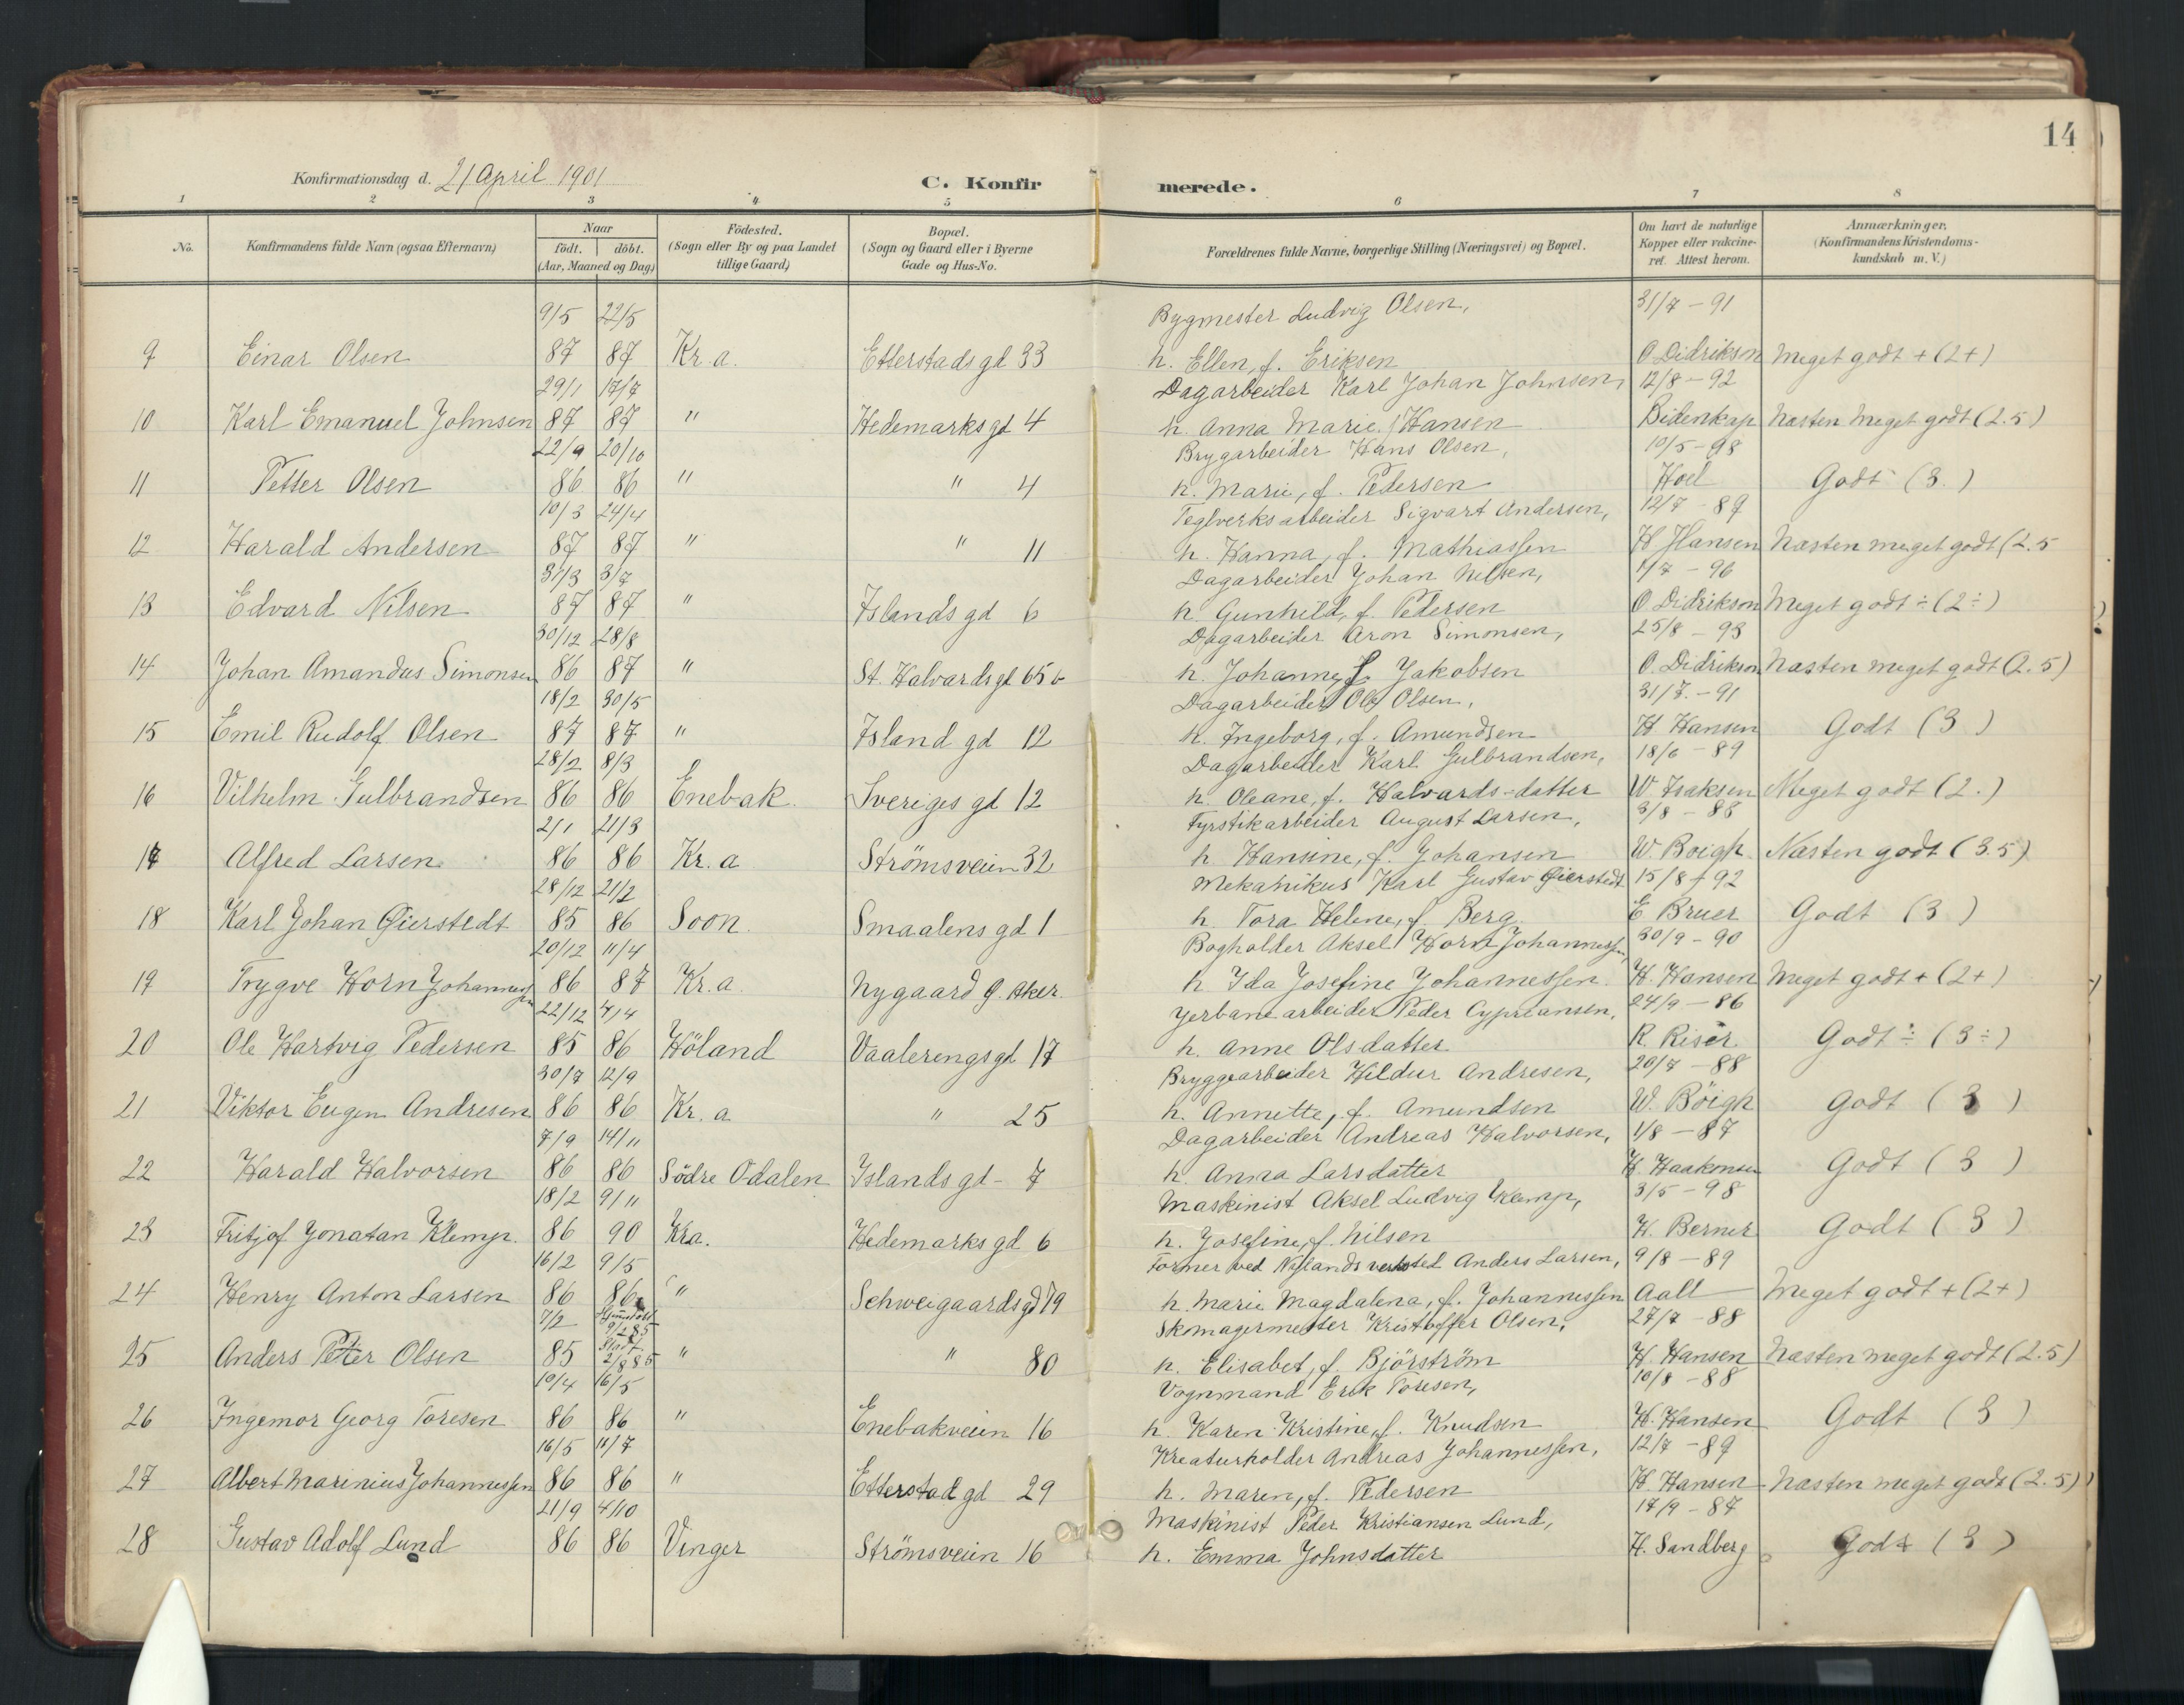 14
Konfirmationsdag d. 21 April 1901
C. Konfirmerede.
1 2 3 4 5 6 7 8
No.
Konfirmandens fulde Navn (ogsaa Efternavn)
Naar
födt. döbt.
(Aar, Maaned og Dag)
Födested.
(Sogn eller By og paa Landet
tillige Gaard)
Bopæl.
(Sogn og Gaard eller i Byerne
Gade og Hus-No.
Forældrenes fulde Navne, borgerlige Stilling (Næringsvei) og Bopæl.
Om havt de naturlige
Kopper eller vakcine-
ret. Attest herom.
Anmærkninger.
(Konfirmandens Kristendoms-
kundskab m. V.)
9/5 22/5 Bygmester Ludvig Olsen, 31/7 - 91
9 Einar Olsen 87 87 Kr.a. Etterstads gd 33 h. Ellen, f. Eriksen O Didrikson Meget godt + (2+)
29/1 17/7 Dagarbeider Karl Johan Johnsen, 12/8 - 92
10 Karl Emanuel Johnsen 87 87 " Hedemarks gd 4 h. Anna Marie f Hansen Bidenkap Næsten meget godt (2.5)
22/9 20/10 Brygarbeider Hans Olsen, 10/5 - 98
11 Petter Olsen 86 86 " " 4 h. Marie, f. Pedersen Hoel Godt (3.)
10/3 24/4 Teglverksarbeider Sigvart Andersen, 12/7 - 89
12 Harald Andersen 87 87 " " 11 h. Hanna, f. Mathiassen H Hansen Næsten meget godt (2.5
31/3 3/7 Dagarbeider Johan Nilsen, 1/7 - 96
13 Edvard Nilsen 87 87 " Islands gd 6 h. Gunhild, f. Pedersen O Didrikson Meget godt ÷ (2÷)
30/12 28/8 Dagarbeider Aron Simonsen, 25/8 - 93
14 Johan Amandus Simonsen 86 87 " St. Halvards gd 65 b h. Johanne f. Jakobsen O. Didrikson Næsten meget godt (2.5)
18/2 30/5 Dagarbeider Ole Olsen, 31/7. - 91
15 Emil Rudolf Olsen 87 87 " Island gd 12 h. Ingeborg, f. Amundsen H Hansen Godt (3)
28/2 8/3 Dagarbeider Karl Gulbrandsen, 18/6 - 89
16 Vilhelm Gulbrandsen 86 86 Enebak. Sveriges gd 12 h. Oleane, f. Halvards-datter W Isaksen Meget godt (2.)
2/1 21/3 Fyrstikarbeider August Larsen, 3/8 - 88
17 Alfred Larsen 86 86 Kr. a Strömsveien 32 h Hansine, f. Johansen W. Boigh Næsten godt (3.5)
28/12 21/2 Mekanikus Karl Gustav Gierstedt 15/8 - 92
18 Karl Johan Gierstedt 85 86 Soon. Smaalens gd 1 h. Tora Helene, f. Berg E Bruer Godt (3)
20/12 11/4 Bogholder Aksel Horn Johannessen, 30/9 - 90
19 Trygve Horn Johannessen 86 87 Kr. a. Nygaard Ø. Aker. h Ida Josefine Johannessen H. Hansen Meget godt + (2+)
22/12 4/4 Jerbanearbeider Peder Cypriansen, 24/9 - 86
20 Ole Hartvig Pedersen 85 86 Höland Vaalerengs gd 17 h. Anne Olsdatter R. Riser Godt ÷ (3÷)
30/7 12/9 Bryggearbeider Hildur Andresen, 20/7 - 88
21 Viktor Eugen Andresen 86 86 Kr. a " 25 h. Annette, f. Amundsen W. Böigh Godt (3)
7/9 14/11 Dagarbeider Andreas Halvorsen, 1/8 - 87
22 Harald Halvorsen 86 86 Södre Odalen Islands gd - 7 h. Anna Larsdatter H. Haakonsen Godt (3)
18/2 9/11 Maskinist Aksel Ludvig Klemp, 3/5 - 98
23 Fritjof Jonatan Klemp. 86 90 Kr.a. Hedemarks gd 6 h. Josefine, f. Nilsen K. Berner Godt (3)
16/2 9/5 Former ved Nylands verksted Anders Larsen, 9/8 - 89
24 Henry Anton Larsen 86 86 " Schweigaards gd 79 h. Marie Magdalena, f. Johannessen Aall Meget godt + (2+)
7/2 Hjemdöbt 9/2 85 Skomagermester Kristoffer Olsen, 27/7 - 88
25 Anders Peter Olsen 85 Stadf. 2/8 85 " " 80 h. Elisabet, f. Björström H. Hansen Næsten meget godt (2.5)
10/4 16/5 Vognmand Erik Toresen, 10/8 - 88
26 Ingemor Georg Toresen 86 86 " Enebakveien 16 h. Karen Kristine, f. Knudsen H. Hansen Godt (3)
16/5 11/7 Kreaturholder Andreas Johannessen, 12/7 - 89
27 Albert Marinius Johannessen 86 86 " Etterstad gd 29 h. Maren, f. Pedersen H Hansen Næsten meget godt (2.5)
21/9 4/10 Maskinist Peder Kristiansen Lund, 17/9 - 87
28 Gustav Adolf Lund 86 86 Vinger Strömsveien 16 h. Emma Johnsdatter H. Sandberg Godt (3)